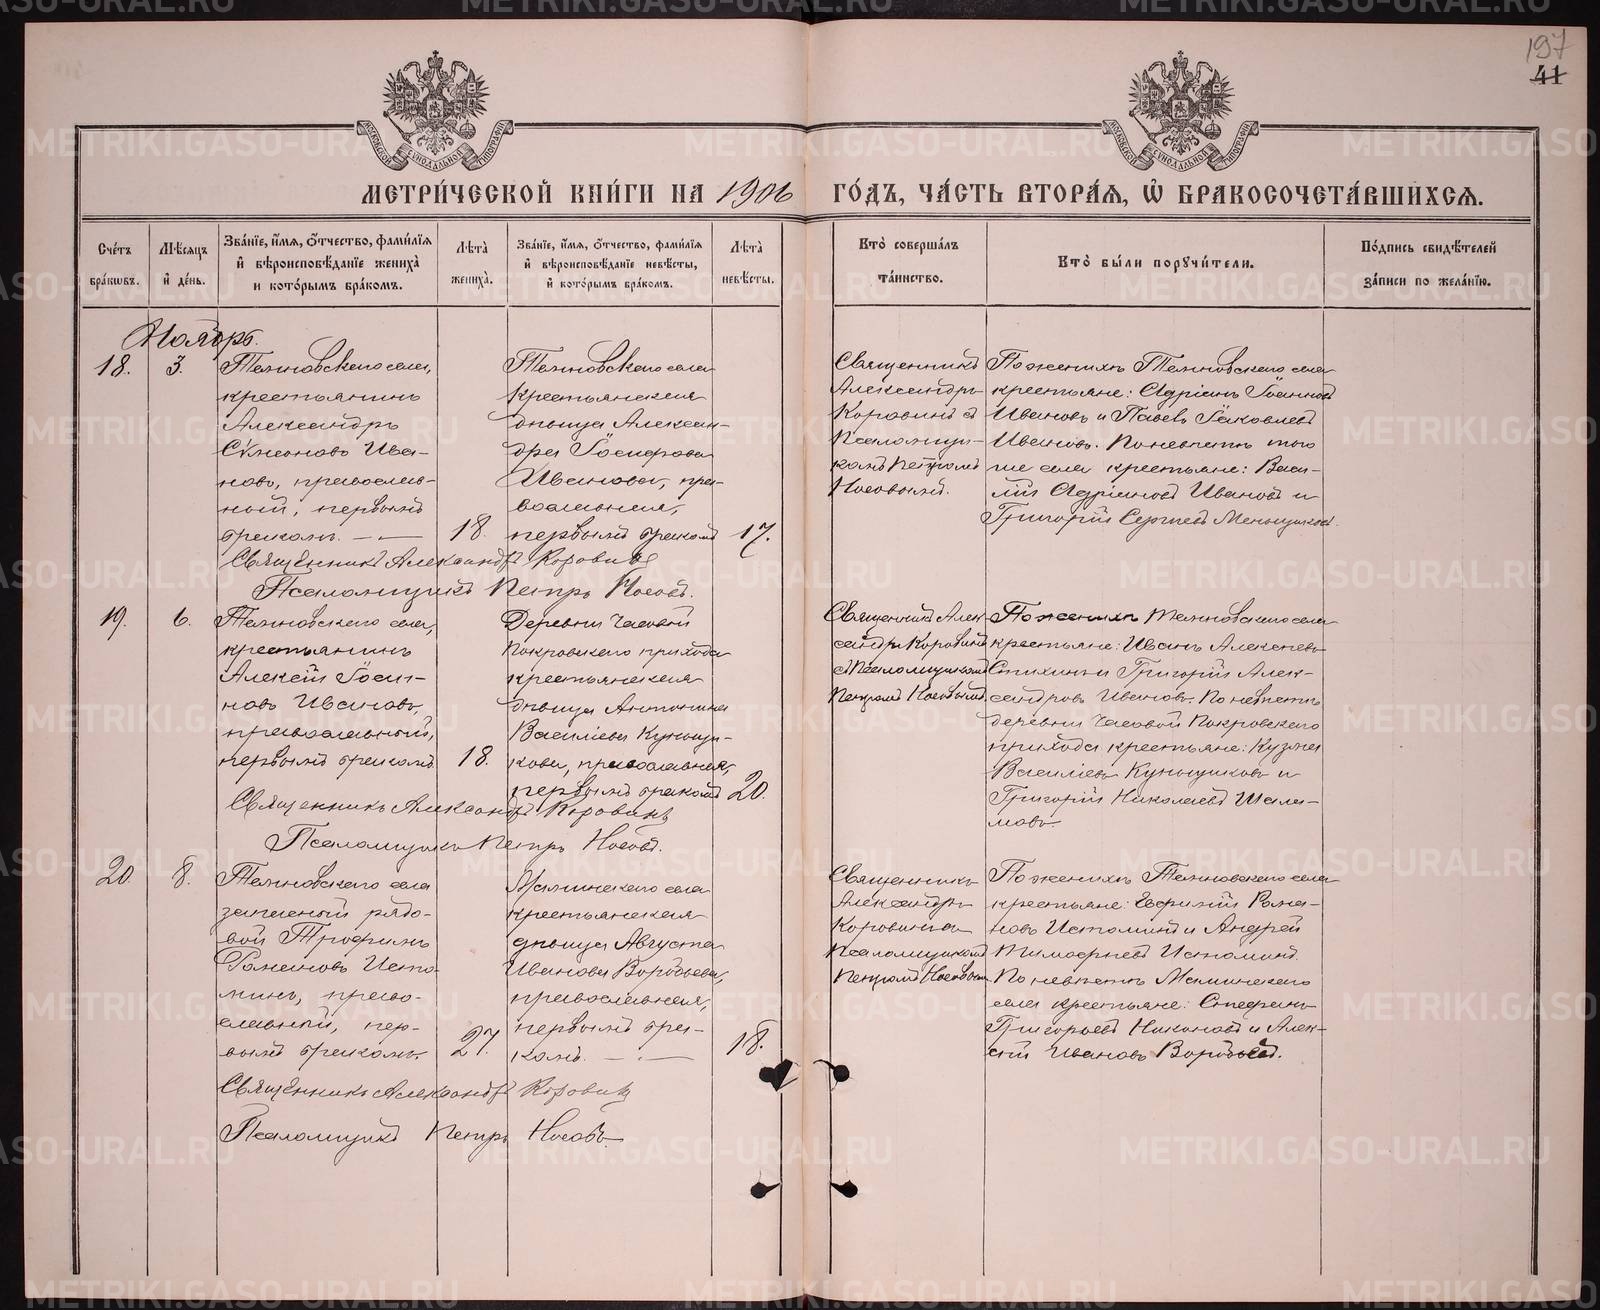 197
41
МОСКОВСКОЙ СѴНОДАЛЬНОЙ ТИПОГРАФІИ
МОСКОВСКОЙ СѴНОДАЛЬНОЙ ТИПОГРАФІИ
МЕТРИ́ЧЕСКОЙ КНИ́ГИ НА 1906 ГО́ДЪ, ЧА́СТЬ ВТОРА́Я, Ѡ БРАКОСОЧЕТА́ВШИХСЯ.
Сче́тъ бра́кωвъ.
Мѣ́сяцъ и҆ де́нь.
Зва́нїе, и҆́мя, ѻ҆́тчество, фами́лїя и҆ вѣроисповѣ́данїе жениха̀ и кото́рымъ бра́комъ.
Лѣта̀ жениха̀.
Зва́нїе, и҆́мя, ѻ҆́тчество, фами́лїя и҆ вѣроисповѣ́данїе невѣ́сты, и҆ кото́рымъ бра́комъ.
Лѣта̀ невѣ́сты.
Кто̀ соверша́лъ та́инство.
Кто̀ бы́ли порꙋчи́тели.
По́дпись свидѣ́телей за́писи по жела́нїю.
Ноябрь.
18.
3.
Темновскаго села,
крестьянинъ
Александръ
Сѵмеоновъ Ива-
новъ, православ-
ный, первымъ
бракомъ.
18.
Темновскаго села
крестьянская
дѣвица Алексан-
дра Іосифова
Иванова, пра-
вославная,
первымъ бракомъ
17.
Священникъ
Александръ
Коровинъ съ
Псаломщи-
комъ Петромъ
Носовымъ.
По женихѣ Темновскаго села
крестьяне: Адріанъ Іоанновъ
Ивановъ и Павелъ Іаковлевъ
Ивановъ. По невѣстѣ того
же села крестьяне: Васи-
лій Адріановъ Ивановъ и
Григорій Сергіевъ Меньщиковъ.
Священникъ Александръ Коровинъ
Псаломщикъ Петръ Носовъ.
19.
6.
Темновскаго села,
крестьянинъ
Алексій Іоан-
новъ Ивановъ,
православный,
первымъ бракомъ
18.
Деревни Часовой
Покровскаго прихода
крестьянская
дѣвица Антонина
Василіева Куньщи-
кова, православная,
первымъ бракомъ
20.
Священникъ Алек-
сандръ Коровинъ
съ Псаломщикомъ
Петромъ Носовымъ.
По женихѣ Темновскаго села
крестьяне: Иванъ Алексѣевъ
Стихинъ и Григорій Алек-
сандровъ Ивановъ. По невѣстѣ
деревни Часовой Покровскаго
прихода крестьяне: Кузма
Василіевъ Куньщиковъ и
Григорій Николаевъ Шала-
мовъ.
Священникъ Александръ Коровинъ
Псаломщикъ Петръ Носовъ.
20.
8.
Темновскаго села
запасный рядо-
вой Трофимъ
Романовъ Исто-
минъ, право-
славный, пер-
вымъ бракомъ.
27.
Маминскаго села
крестьянская
дѣвица Августа
Иванова Воробьева,
православная,
первымъ бра-
комъ.
18.
Священникъ
Александръ
Коровинъ съ
Псаломщикомъ
Петромъ Носовымъ
По женихѣ Темновскаго села
крестьяне: Ефимій Рома-
новъ Истоминъ и Андрей
Тимофѣевъ Истоминъ.
По невѣстѣ Маминскаго
села крестьяне: Стефанъ
Григорьевъ Никоновъ и Алек-
сій Ивановъ Воробьевъ.
Священникъ Александръ Коровинъ
Псаломщикъ Петръ Носовъ
METRIKI.GASO-URAL.RU